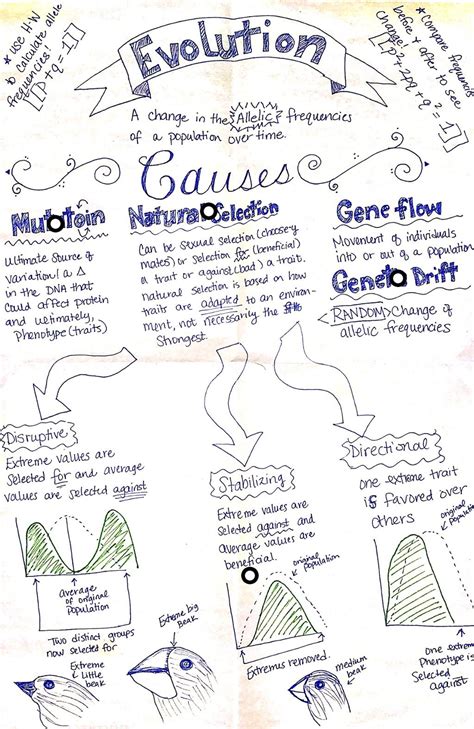 * use H-W
to calculate allele
frequencies!
[[P+q=1]]
Evolution
* Compare frequencies
before + after to see
change!
[[P²+2pq+q²=1]]
A change in the Allelic frequencies
of a population over time.
Causes
Mutatoin
Ultimate source of
variation! a Δ
in the DNA that
could affect protein
and ultimately,
Phenotype (traits)
Natural Selection
Can be sexual selection (choosey
mates) or selection for (beneficial)
a trait or against (bad) a trait.
natural selection is based on how
traits are adapted to an environ-
ment, not necessarily the
Strongest.
Gene flow
Movement of individuals
into or out of a population
Genetic Drift
RANDOM Change of
allelic frequencies
Disruptive
Extreme values are
Selected for and average
values are selected against
average
of original
Population
Two distinct groups
now selected for
Extreme
little
beak
Extreme big
Beak
Stabilizing
Extreme values are
selected against and
average values are
beneficial.
original
population
Extremes removed.
medium
beak
Directional
one extreme trait
is favored over
others
original
population
one extreme
Phenotype is
Selected
against